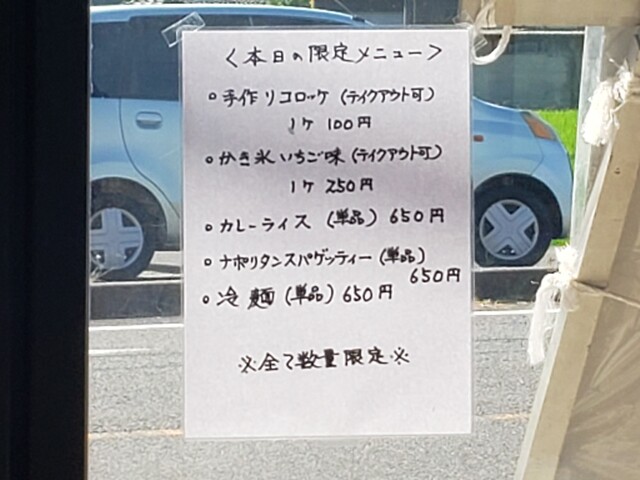 <本日の限定メニュー>
○ 手作りコロッケ (テイクアウト可)
1ケ 100円
○ かき氷いちご味 (テイクアウト可)
1ケ 250円
○ カレーライス (単品) 650円
○ ナポリタンスパゲッティー (単品)
650円
○ 冷麺 (単品) 650円
※全て数量限定※